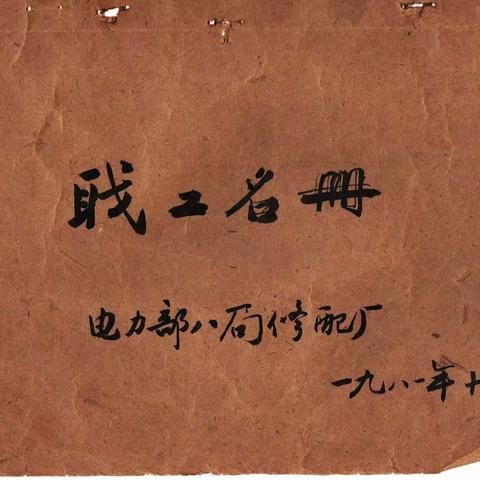 职工名册
电力部八局修配厂
一九八一年十